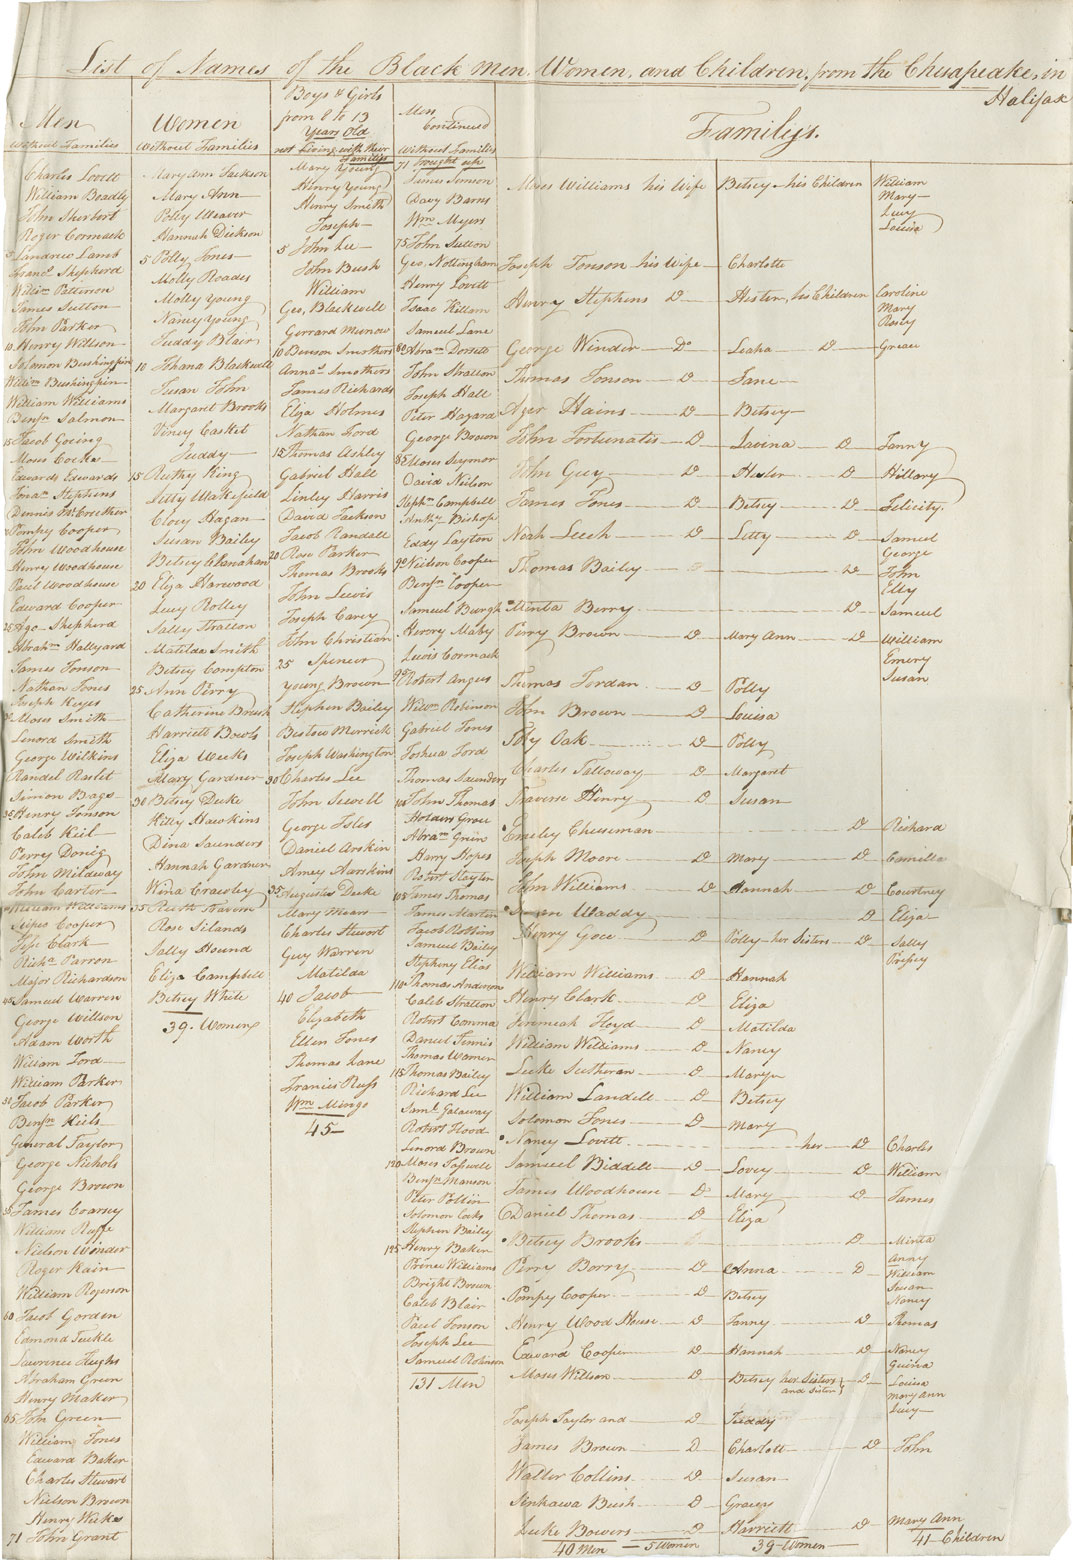 List of Names of the Black Men, Women, and Children, from the Chesapeake, in
Halifax
Men
Without Families
Charles Lovett
William Beadly
John Sherbert
Roger Cormack
5 Landrew Lamb
Shepherd
Willm Patterson
James Sutton
John Parker
10 Henry Willson
Solomon Bushingpin
Willm Bushingpin
William Williams
Benjn Salmon
15 Jacob Going
Moses Cocke
Edwards Edwards
Jonan Stephens
Dennis
Pompy Cooper
John Woodhouse
Henry Woodhouse
Paul Woodhouse
Edward Cooper
25 Ago Shepherd
Abrahm Hallyard
James Jonson
Nathan Jones
Joseph Keyes
30 Moses Smith
Lenord Smith
George Wilkins
Randel Raslit
Simon Bags
35 Henry Jonson
Caleb Keil
Perry Donig
John Mildway
John Carter
William Williams
Sipes Cooper
John Clark
Richd Parron
Major Richardson
45 Samuel Warren
George Willson
Adam Worth
William Ford
William Parker
50 Jacob Parker
Benjn Keils
General Taylor
George Nichols
George Brown
55 James Coarsey
William Ruffe
Nielson Winder
Roger Kain
William Rogerson
60 Jacob Gorden
Edmond Tuckle
Lawrence Hughs
Abraham Green
Henry Maker
65 John Green
William Jones
Edward Baker
Charles Stewart
Nielson Brown
Henry Weeks
71 John Grant
Women
Without Families
Mary Ann Jackson
Mary Ann
Polly Weaver
Hannah Dickson
5 Polly Jones
Molly Roades
Molly Young
Nancy Young
Juddy Blair
10 Johana Blackwell
Susan John
Margaret Brooks
Viney Casket
Juddy
15 Ruthy King
Letty Wakefield
Cloey Hagan
Susan Bailey
Betsey Chanahan
20 Eliza Harwood
Lucy Rolley
Sally Stratton
Matilda Smith
Betsey Compton
25 Ann Perry
Catherine Brush
Harriett Bowls
Eliza Weeks
Mary Gardner
30 Betsey Duke
Kitty Hawkins
Dina Saunders
Hannah Gardner
Wina Crawley
35 Ruth
Rose Silands
Sally Hound
Eliza Campbell
Betsey White
39 - Women
Boys & Girls
from 8 to 13
Years Old
not Living with their
Familys
Mary Young
Henry Young
Henry Smith
Joseph
5 John Lee
John Bush
William
Geo. Blackwell
Gerrard Munow
10 Benson Smothers
Annas Smothers
James Richards
Eliza Holmes
Nathan Ford
15 Thomas Ashley
Gabriel Hall
Linley Harris
David Jackson
Jacob Randall
20 Rose Parker
Thomas Brooks
John Lewis
Joseph Carey
John Christian
25 Spencer
Young Brown
Stephen Bailey
Bestow Merrick
Joseph Washington
30 Charles Lee
John Sewell
George Isles
Daniel Arskin
Amey Hawkins
35 Augustus Duke
Mary Mears
Charles Stewort
Guy Warren
Matilda
40 Jacob
Elizabeth
Ellen Jones
Thomas Lane
Francis Ruffs
Wm Mingo
45
Men
Continued
Without Families
71 brought up
James Jonson
Davy Barns
Wm Myers
75 John Sutton
Geo. Nottingham
Henry Lovett
Isaac Killam
Samuel Lane
80 Abram Dorsett
John Stratton
Joseph Hall
Peter Hazard
George Brown
85 Moses Seymor
David Nielson
Stephn Campbell
Anthy Bishop
Eddy Layton
90 Neilson Cooper
Benjn Cooper
Samuel Burgh
Henry Maby
Lewis Cormack
95 Robert Angus
Willm Robinson
Gabriel Jones
Joshua Ford
Thomas Saunders
100 John Thomas
Holders Grou
Abram Green
Harry Hopes
Robert Slayton
105 James Thomas
James Martin
Jacob Robbins
Samuel Bailey
Stepheny Elias
110 Thomas Anderson
Caleb Stratton
Robert Comma
Daniel Finnis
Thomas Warner
115 Thomas Bailey
Richard Lee
Saml Galaway
Robert Hood
Lenord Brown
120 Moses Taswell
Benjn Manson
Peter Pollin
Solomon Cocks
Stephen Bailey
125 Henry Baker
Prince Williams
Bright Brown
Caleb Blair
Paul Jonson
Joseph Lee
Samuel Robinson
131 Men
Familys.
Moses Williams his Wife Betsey his Children William
Mary
Lucy
Louisa
Joseph Jonson his Wife Charlotte
Henry Stephens D Hester his Children Caroline
Mary
Rosey
George Winder Do Leaha D Grace
Thomas Jonson D Jane
Ager Hains D Betsey
John Fortunatis D Lavina D Fanny
John Guy D Hester D Hillary
James Jones D Betsey D Felicity.
Noah Leech D Letty D Samuel
George
Thomas Bailey D John
Elly
Minta Berry D Samuel
Perry Brown D Mary Ann D William
Emery
Susan
Thomas Jordan D Polly
John Brown D Louisa
Toby Oak D Polly
Charles Talloway D Margaret
Traverse Henry D Susan
Emeley Cheeseman D Richard
Joseph Moore D Mary D Camilla
John Williams D Hannah D Courtney
Susan Waddy D Eliza
Henry Gou D Polly her Sisters D Sally
Pressey
William Williams D Hannah
Henry Clark D Eliza
Jerimeah Floyd D Matilda
William Williams D Nancy
Luke Sutheran D Marya
William Landell D Betsey
Solomon Jones D Mary
Nancy Lovett her D Charles
Samuel Biddell D Lovey D William
James Woodhouse D Mary D James
Daniel Thomas D Eliza
Betsey Brooks D Minta
Anny
Perry Borry D Anna D William
Susan
Pompy Cooper D Betsey Nancy
Henry Wood House D Fanny D Thomas
Edward Cooper D Hannah D Nancy
Guina
Moses Willson D Betsey her Sisters and Sister D Louisa
Mary Ann
Lucy
Joseph Taylor and D Juddy
James Brown D Charlott D John
Walter Collins D Susan
Sinkawa Bush D Gracey
Luke Bowers D Harriett D Mary Ann
40 Men - 5 Women 39 - Women 41 - Children